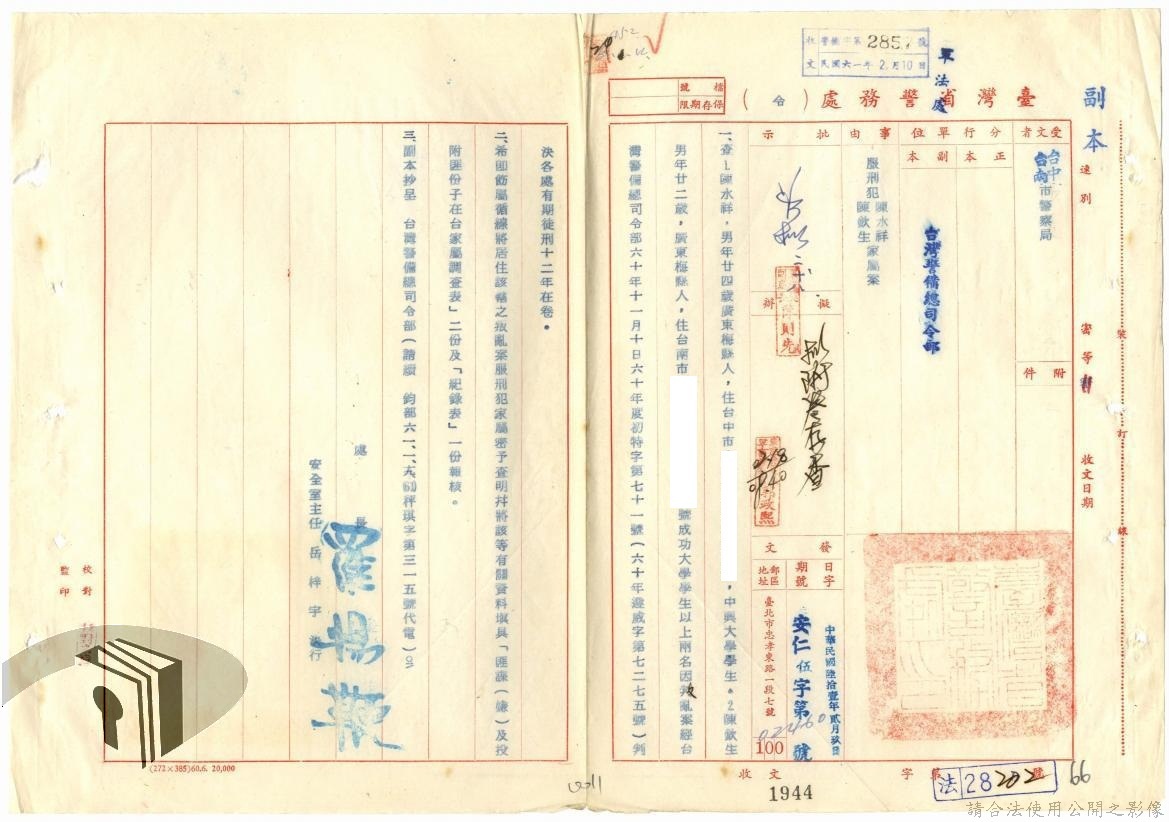 副本
臺灣省警務處（令）
軍法處
收文
警備字第285 號
民國六一年2.月10日
檔號
保存期限
速別
密等
收文日期
受文者
台中
台南
市警察局
附件
分行單位
正本
副本
台灣警備總司令部
事由
服刑犯陳水祥
陳欽生
家屬案
批示
擬辦
發文
日期
字號
郵區地址
中華民國陸拾壹年貳月玖日
安仁伍字第 號
臺北市忠孝東路一段七號
100
一、查1.陳水祥，男年廿四歲廣東梅縣人，住台中市 ，中興大學學生。2.陳欽生
男年廿二歲，廣東梅縣人，住台南市 號成功大學學生以上兩名因叛亂案經台
灣警備總司令部六十年十一月十日六十年度初特字第七十一號（六十年澄威字第七二七五號）判
決各處有期徒刑十二年在卷。
二、希即飭屬循線將居住該轄之叛亂案服刑犯家屬密予查明幷將該等有關資料填具「匪諜（嫌）及投
附匪份子在台家屬調查表」二份及「紀錄表」一份報核。
三、副本抄呈 台灣警備總司令部（請續 鈞部六一、一、 秤琪字第三一五號代電）
處長 羅揚鞭
安全室主任 岳梓宇 行
校對
監印
裝
訂
線
收文 字第 號
1944
法 28202
66
(272×385)60.6. 20,000
請合法使用公開之影像